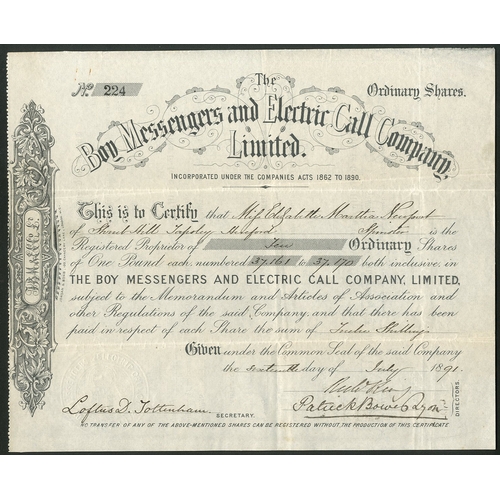 No. 224
The
Ordinary Shares.
Boy Messengers and Electric Call Company,
Limited.
INCORPORATED UNDER THE COMPANIES ACTS 1862 TO 1890.
This is to Certify that Miss Elizabeth Martha Newport
of Hill Hereford Spinster is the
Registered Proprietor of Ten Ordinary Shares
of One Pound each numbered 37.161 to 37.170 both inclusive, in
THE BOY MESSENGERS AND ELECTRIC CALL COMPANY, LIMITED,
subject to the Memorandum and Articles of Association and
other Regulations of the said Company, and that there has been
paid in respect of each Share the sum of Twelve Shillings
Given under the Common Seal of the said Company
the day of July 1891.
Loftus D. Tottenham SECRETARY.
Patrick Bowes Lyon
DIRECTORS.
NO TRANSFER OF ANY OF THE ABOVE-MENTIONED SHARES CAN BE REGISTERED WITHOUT THE PRODUCTION OF THIS CERTIFICATE